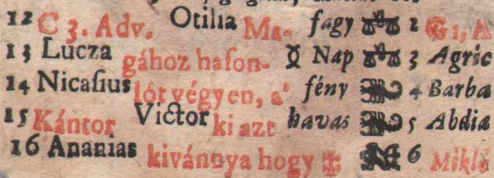 12 C 3. Adv. Otilia Ma- fagy 2 G1, A
13 Lucza gához hason- ☿ Nap 3 Agric
14 Nicasius lót végyen, a' fény 4 Barba
15 Kántor Victor ki azt havas 5 Abdia
16 Ananias kivánnya hogy 6 Miklo